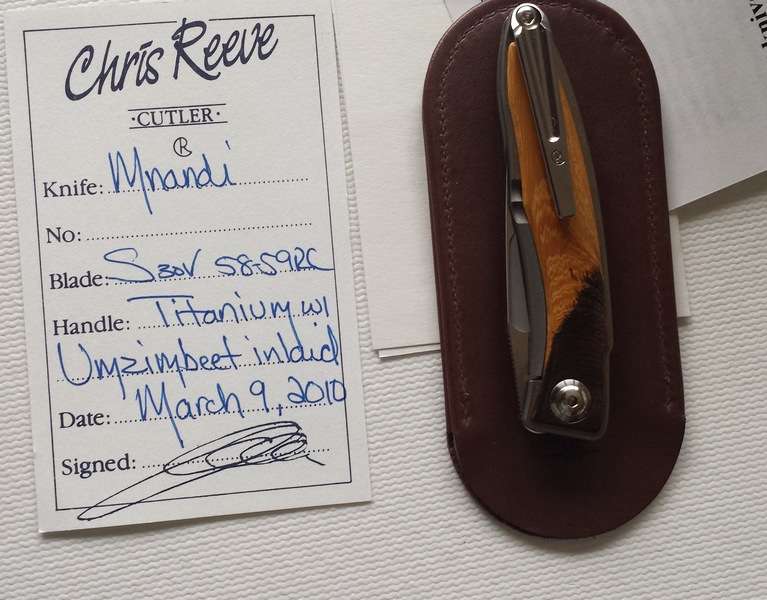 Chris Reeve
·CUTLER·
Knife: Mnandi
No:
Blade: S30V 58-59RC
Handle: Titanium w/
Umzimbeet inlaid
Date: March 9, 2010
Signed: